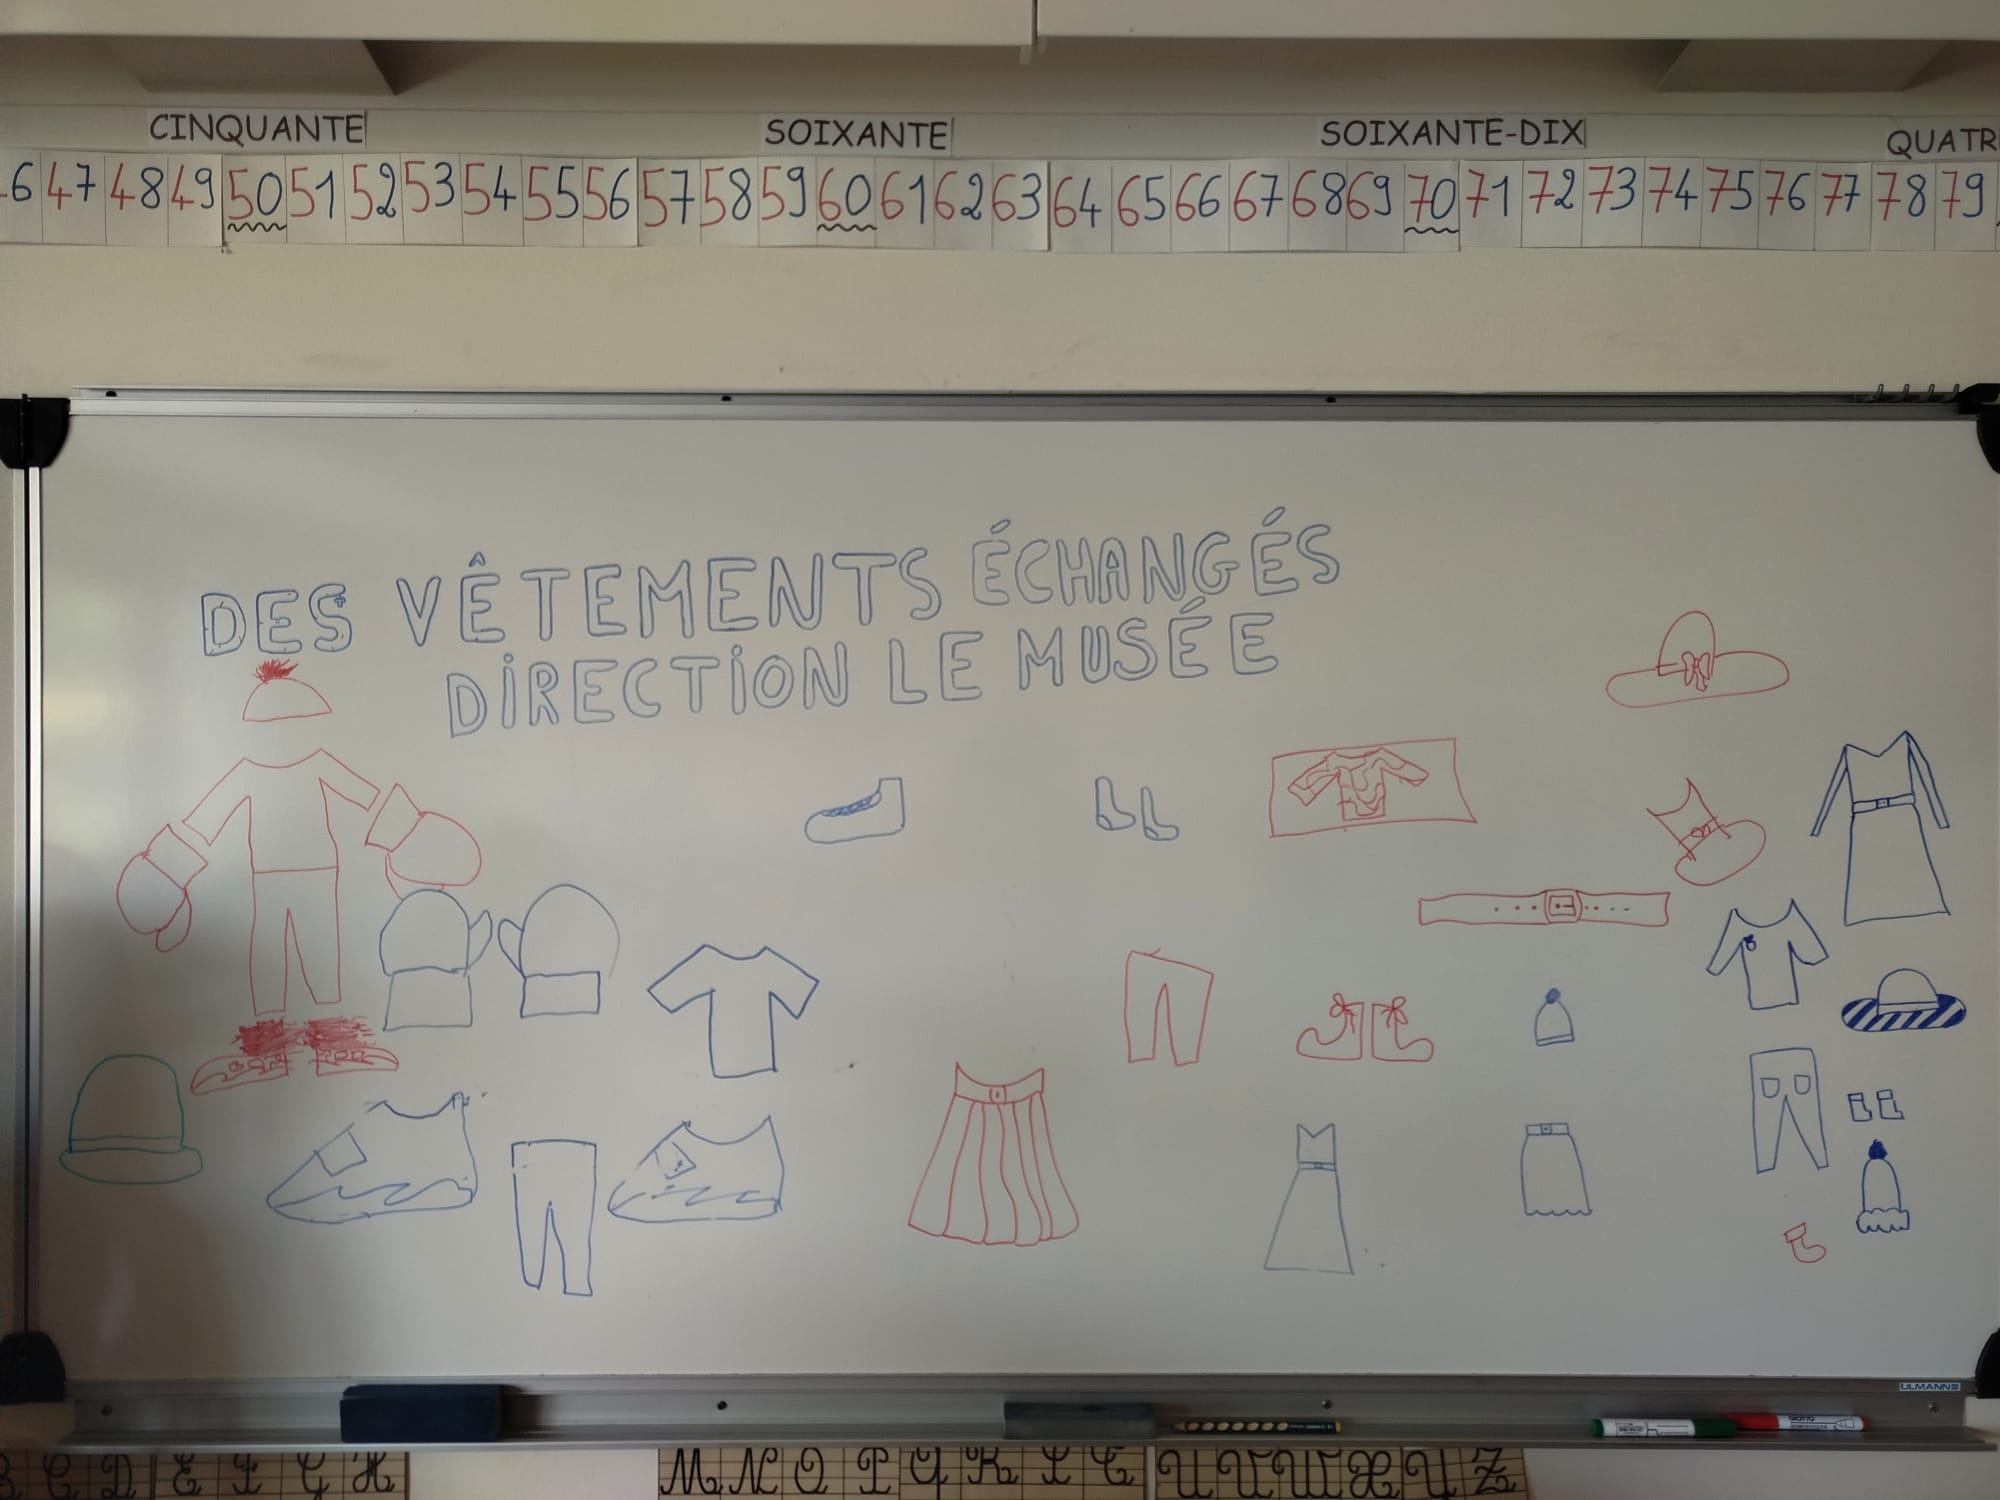 CINQUANTE SOIXANTE SOIXANTE-DIX QUATR
6 47 48 49 50 51 52 53 54 55 56 57 58 59 60 61 62 63 64 65 66 67 68 69 70 71 72 73 74 75 76 77 78 79
DES VÊTEMENTS ÉCHANGÉS
DIRECTION LE MUSÉE
ULMANN
GIOTTO
C D E F G H M N O P Q R S T U V W X Y Z